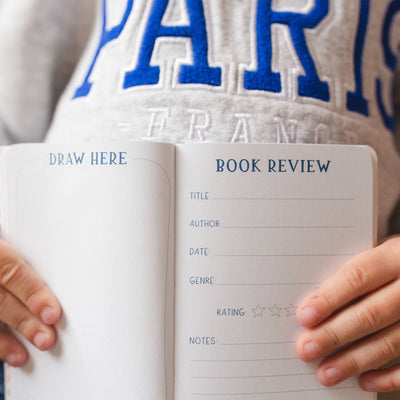 PARIS
-FRANC
DRAW HERE
BOOK REVIEW
TITLE:
AUTHOR:
DATE:
GENRE:
RATING: ☆☆☆
NOTES: